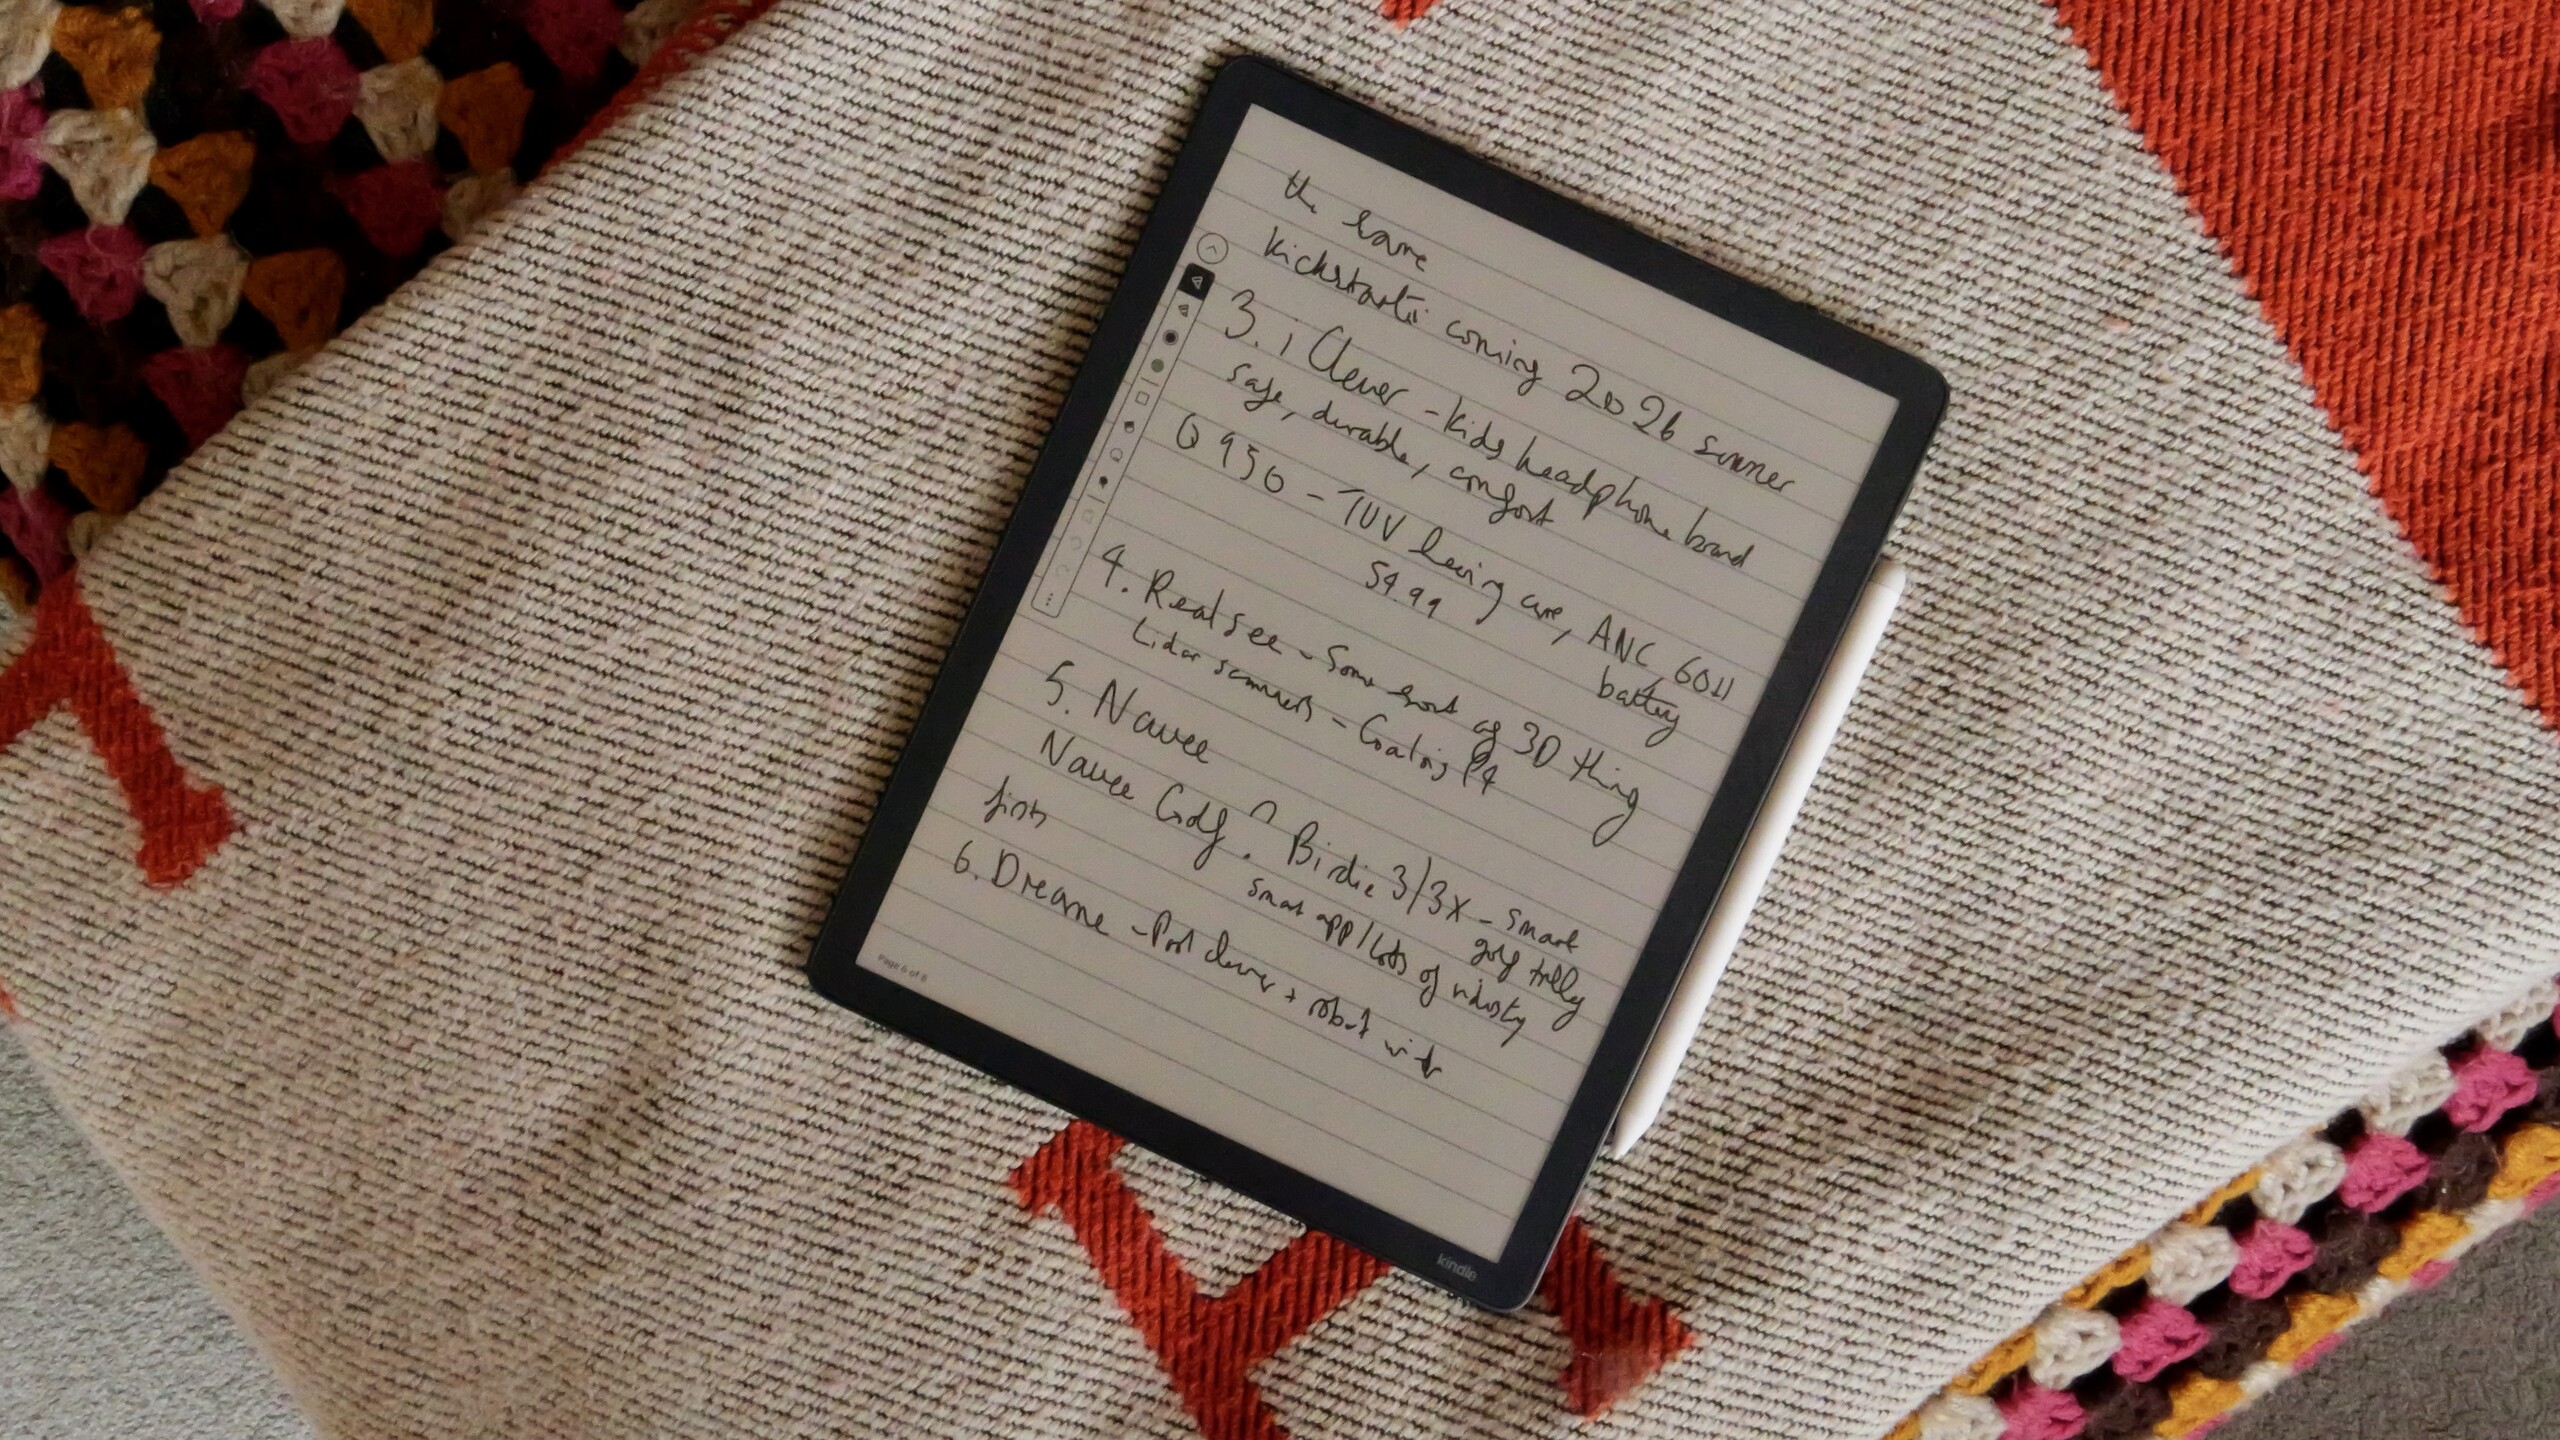 the same
Kickstartii coming 2026 summer
3. iClever - kids headphone brand
safe, durable, comfort
Q950 - TUV hearing care, ANC, 60H
battery
54.99
4. Realsee - Some sort of 3D thing
Lidar scanners - Galois P4
5. Navee
Navee Golf. Birdie 3/3X - smart
golf trolly
smart app/lots of industry
firsts
6. Dreame - Pool cleaner + robot with
Page 6 of 8
kindle